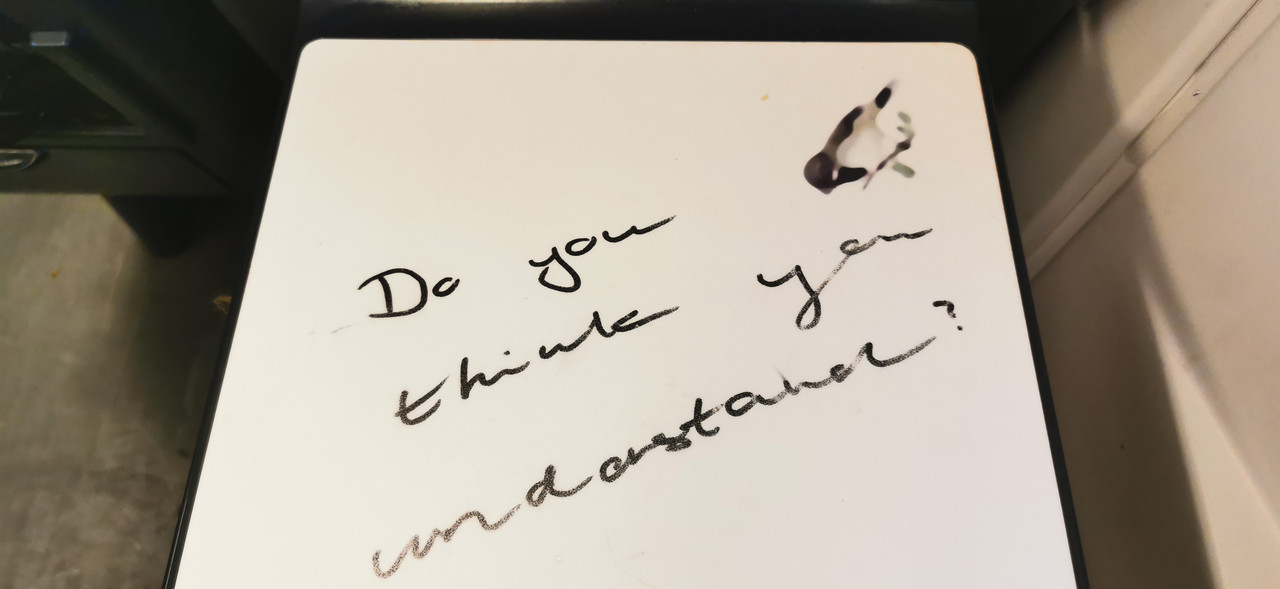 Do you
think you
understand?